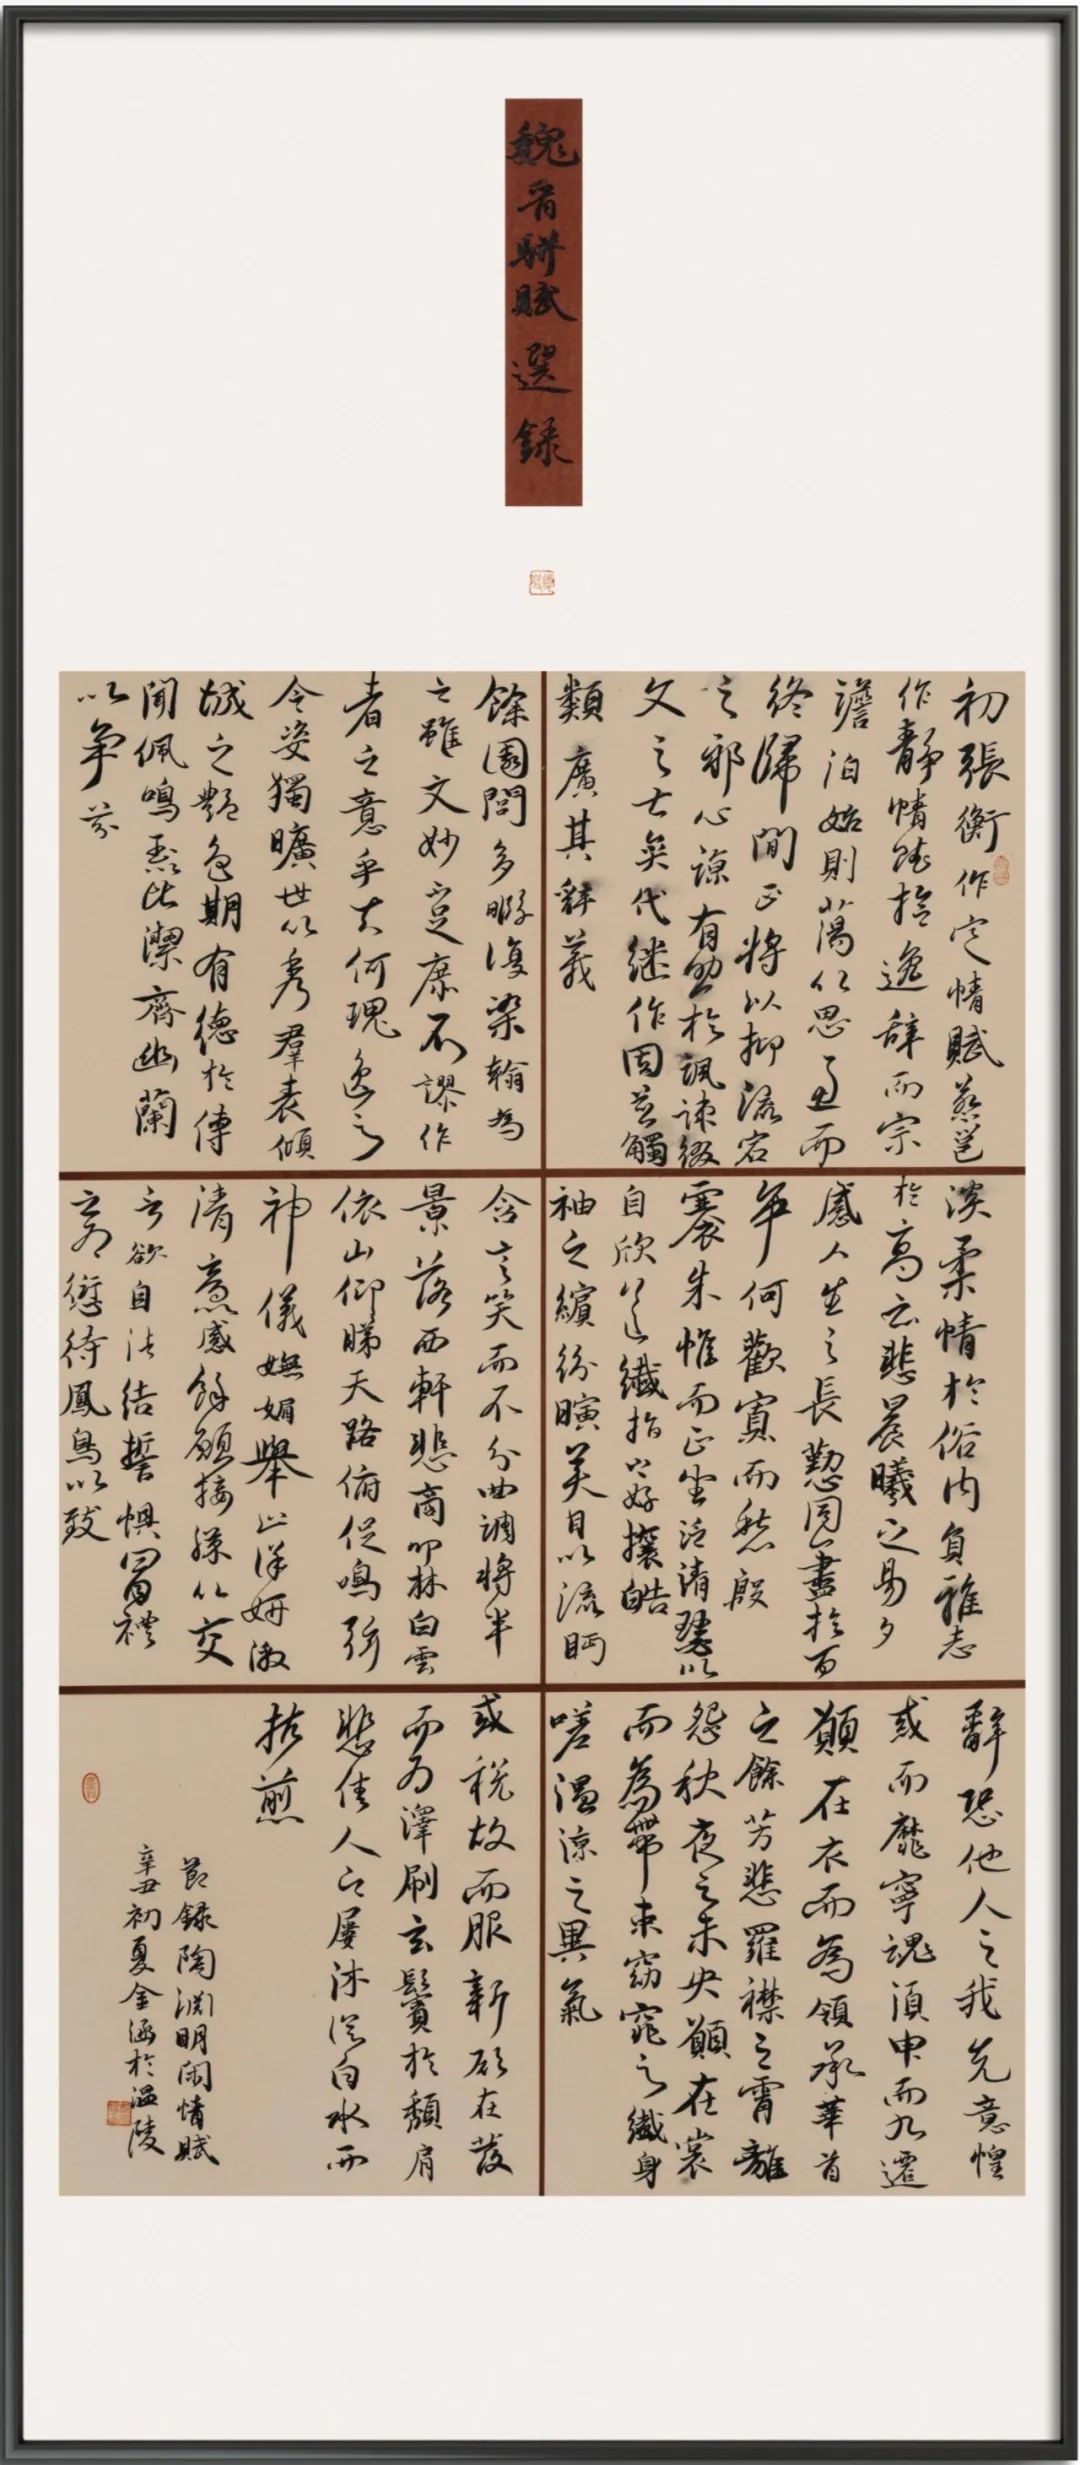 魏晋駢賦選錄
初張衡作定情賦蔡邕
作靜情賦撿逸辞而宗
澹泊始則蕩以思慮而
終歸閒正將以抑流宕
之邪心諒有助於諷諫綴
文之士奕代継作因並觸
類廣其辞義
餘園閭多暇復染翰為
之雖文妙不足庶不謬作
者之意乎夫何瑰逸之
令姿獨曠世以秀群表傾
城之艶色期有德於傳
聞佩鳴玉以比潔齊幽蘭
以爭芬
淡柔情於俗内負雅志
於高雲悲晨曦之易夕
感人生之長勤同一盡於百
年何歡寡而愁殷
褰朱帷而正坐泛清瑟以
自欣送纖指之餘好攘皓
袖之繽紛瞚美目以流眄
含言笑而不分曲調將半
景落西軒悲商叩林白雲
依山仰睇天路俯促鳴弦
神儀嫵媚舉止詳妍激
清音以感余願接膝以交
言欲自往以結誓懼冒禮
之為愆待鳳鳥以致
辭恐他人之我先意惶
惑而靡寧魂須臾而九遷
願在衣而為領承華首
之餘芳悲羅襟之宵離
怨秋夜之未央願在裳
而為帶束窈窕之纖身
嗟溫涼之異氣
或税故而服新願在髮
而為澤刷玄鬢於頹肩
悲佳人之屢沐從白水而
枯煎
節録陶淵明閑情賦
辛丑初夏金涵於温陵